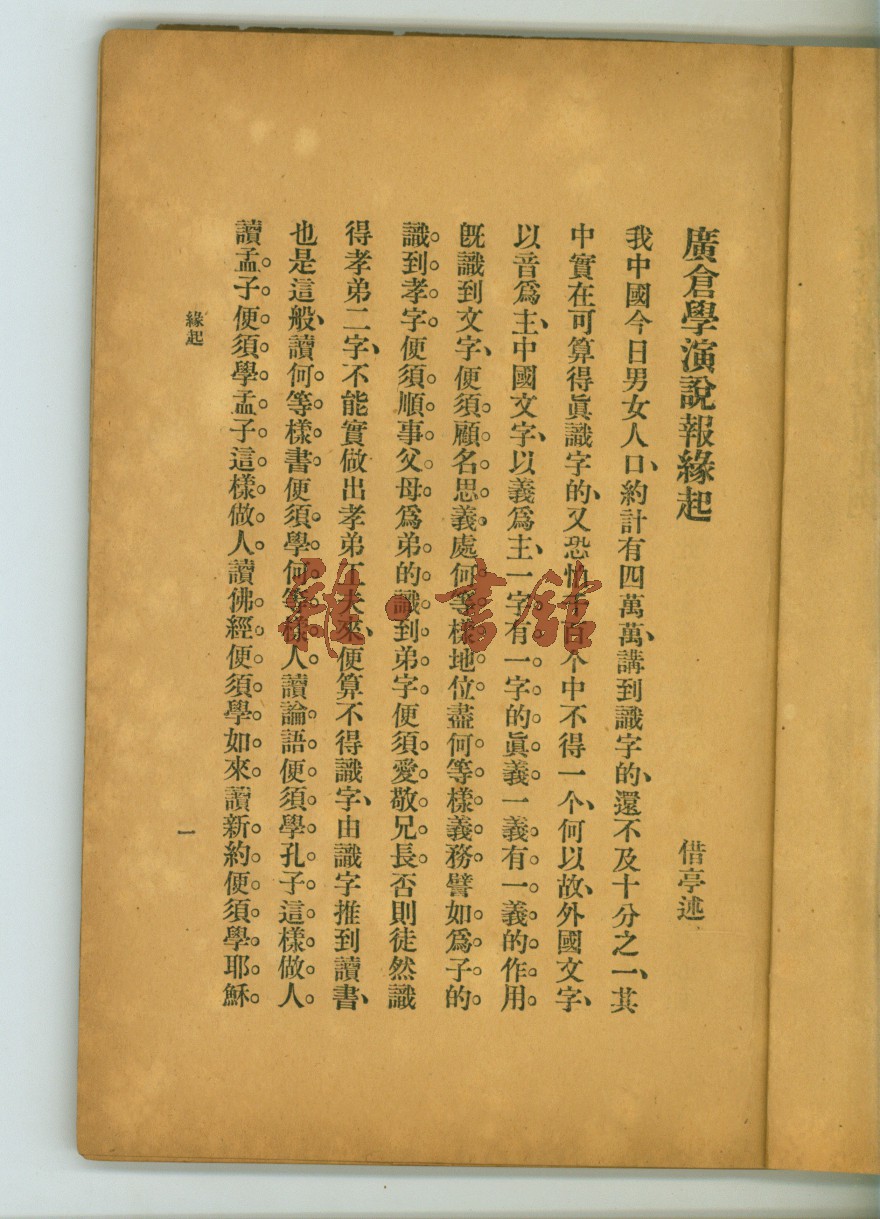 廣倉學演說報緣起
借亭述
我中國今日男女人口、約計有四萬萬、講到識字的、還不及十分之一、其
中實在可算得眞識字的、又恐怕千百个中不得一个、何以故、外國文字、
以音爲主、中國文字、以義爲主、一字有一字的眞義一義有一義的作用。
旣識到文字、便須顧名思義處何等樣地位盡何等樣義務譬如爲子的
識到孝字便須順事父母爲弟的識到弟字便須愛敬兄長否則徒然識
得孝弟二字、不能實做出孝弟工夫來、便算不得識字、由識字推到讀書、
也是這般、讀何等樣書便須學何等樣人讀論語便須學孔子這樣做人。
讀孟子便須學孟子這樣做人。讀佛經便須學如來讀新約便須學耶穌。
緣起
一
雜·書館